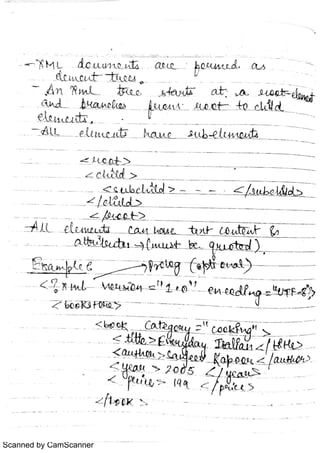 - XML documents are formed as
element trees.
- An Xml tree starts at a root-element
and branches from root to child
elements.
- All elements have sub-elements
<root>
<child>
<subchild> - - - </subchild>
</child>
</root>
- All elements can have text content &
attributes → (must be quoted).
Example : → Prolog (optional)
<? xml version = "1.0" encoding = "UTF-8"?>
<bookstore>
<book Category = "cooking">
<title> Everyday Italian </title>
<author> Sanjeev Kapoor </author>
<year> 2005 </year>
<price> 199 </price>
</book>
Scanned by CamScanner